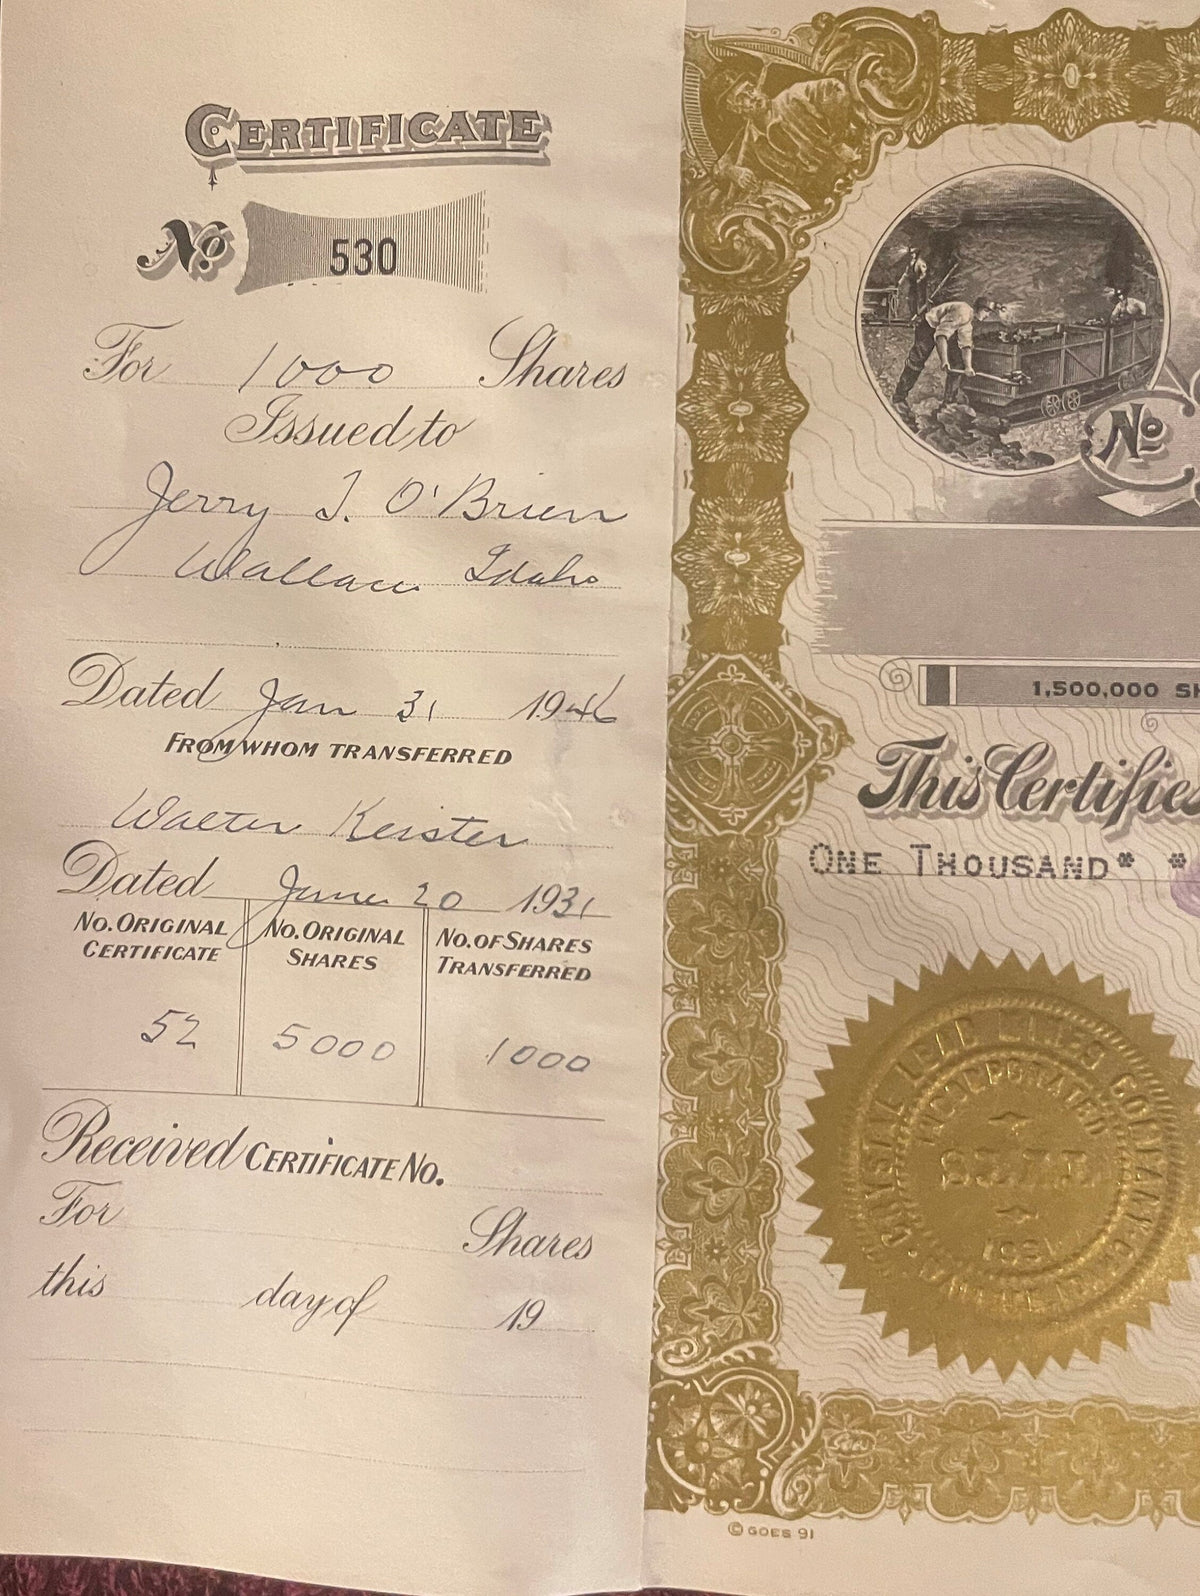 CERTIFICATE
No. 530
For 1000 Shares
Issued to
Jerry J. O'Brien
Wallace Idaho
Dated Jan 31 1946
FROM WHOM TRANSFERRED
Walter Keister
Dated June 20 1931
No. ORIGINAL CERTIFICATE
No. ORIGINAL SHARES
No. OF SHARES TRANSFERRED
52 5000 1000
Received CERTIFICATE No.
For Shares
this day of 19
No
1,500,000 SH
This Certifies
ONE THOUSAND* *
LEAD MINES COMPANY
INCORPORATED
SEAL
© GOES 91